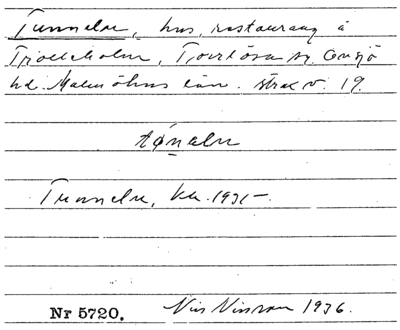 Tunneln, hus, restaurang å
Trolleholm, Torrlösa sn, Onsjö
hd. Malmöhus län. strax v. 19.
tǿnaln
Tunneln, kk. 1931-
Nr 5720. Nils Nilsson 1936.